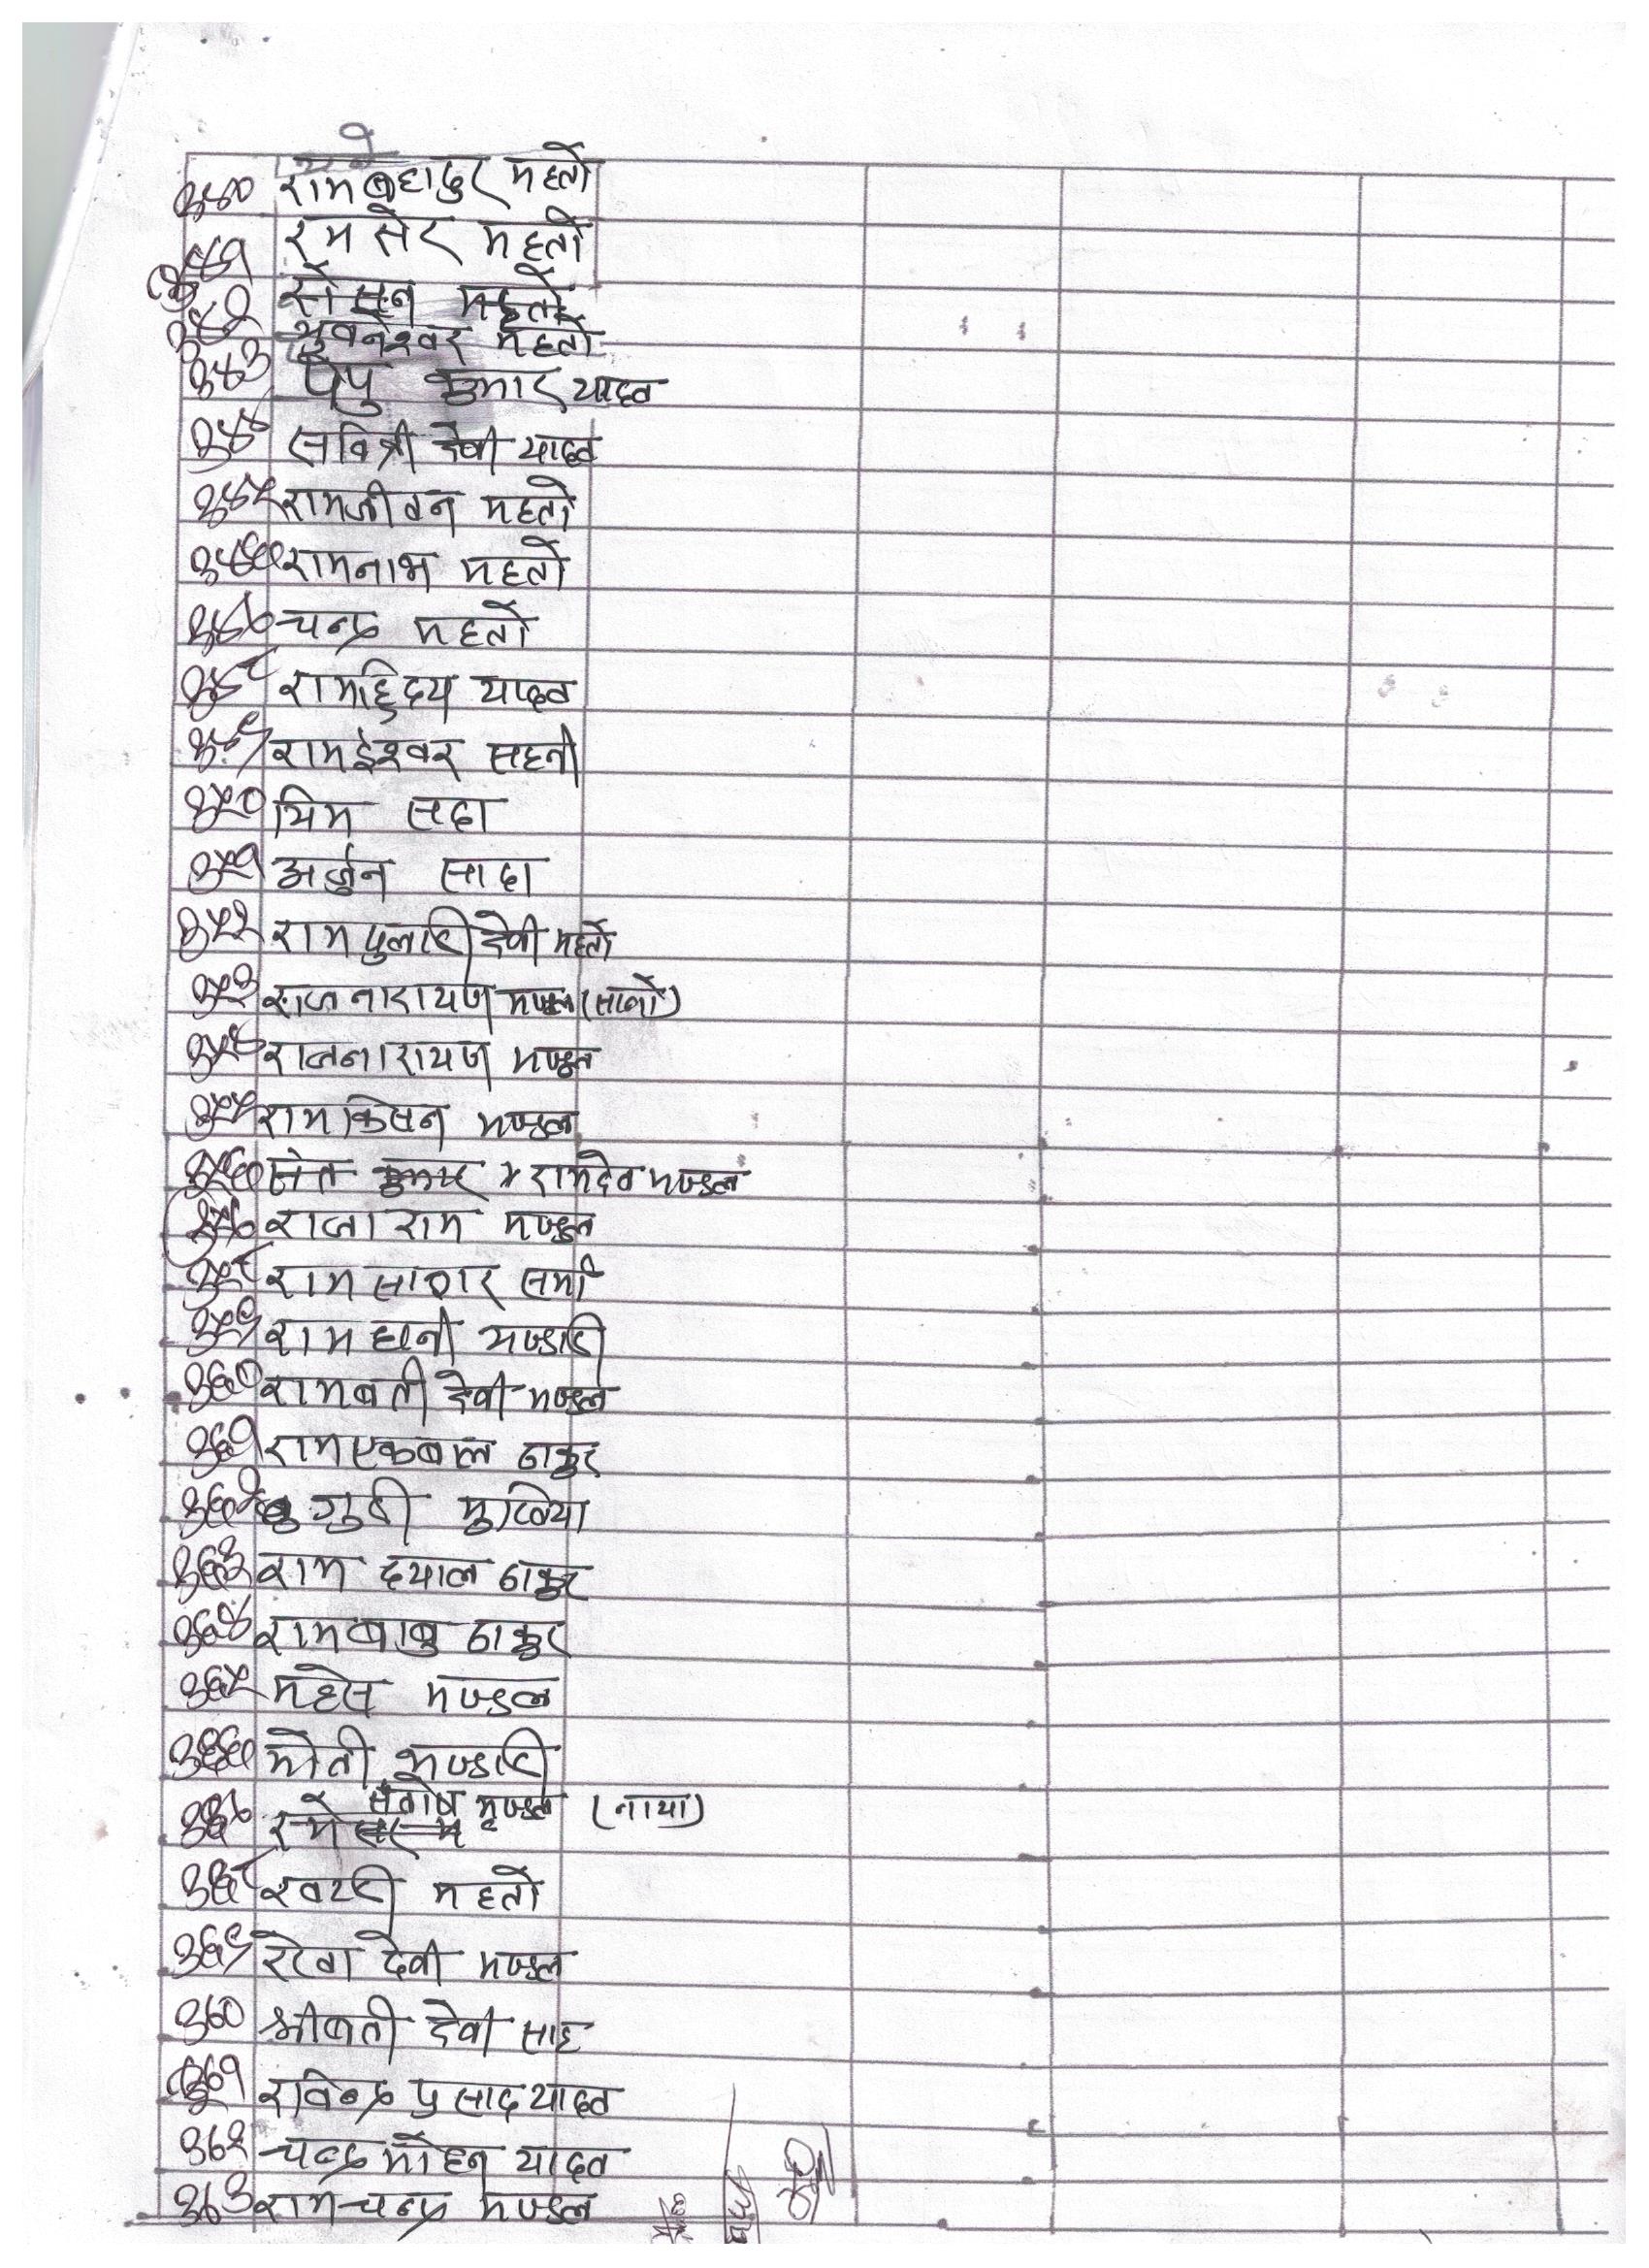 ३४० रामबहादुर महतो
३४१ रमसेर महतो
महतो
३४२ भुवनेश्वर महतो
३४३ पपु कुमार यादव
३४४ सवित्री देवी यादव
३४५ रामजीवन महतो
३४६ रामनाथ महतो
३४७ चन्द्र महतो
३४८ रामह्रिदय यादव
३४९ रामईश्वर सहनी
३५० भिम सदा
३५१ अर्जुन सादा
३५२ रामदुलारी देवी महतो
३५३ राजनारायण मण्डल (सानो)
३५४ राजनारायण मण्डल
३५५ रामकिसन मण्डल
३५६ रामदेव मण्डल
३५७ राजाराम मण्डल
३५८ रामसागर सर्मा
३५९ राम भण्डारी
३६० रामबती देवी मण्डल
३६१ रामएकबाल ठाकुर
३६२ गुठी मुखिया
३६३ राम दयाल ठाकुर
३६४ रामबाबु ठाकुर
३६५ महेस मण्डल
३६६ मोती भण्डारी
३६७ संतोष मण्डल (नाया)
३६८ महतो
३६९ रेखा देवी मण्डल
३७० श्रीबती देवी साह
३७१ रविन्द्र प्रसाद यादव
३७२ चन्द्र मोहन यादव
३७३ रामचन्द्र मण्डल